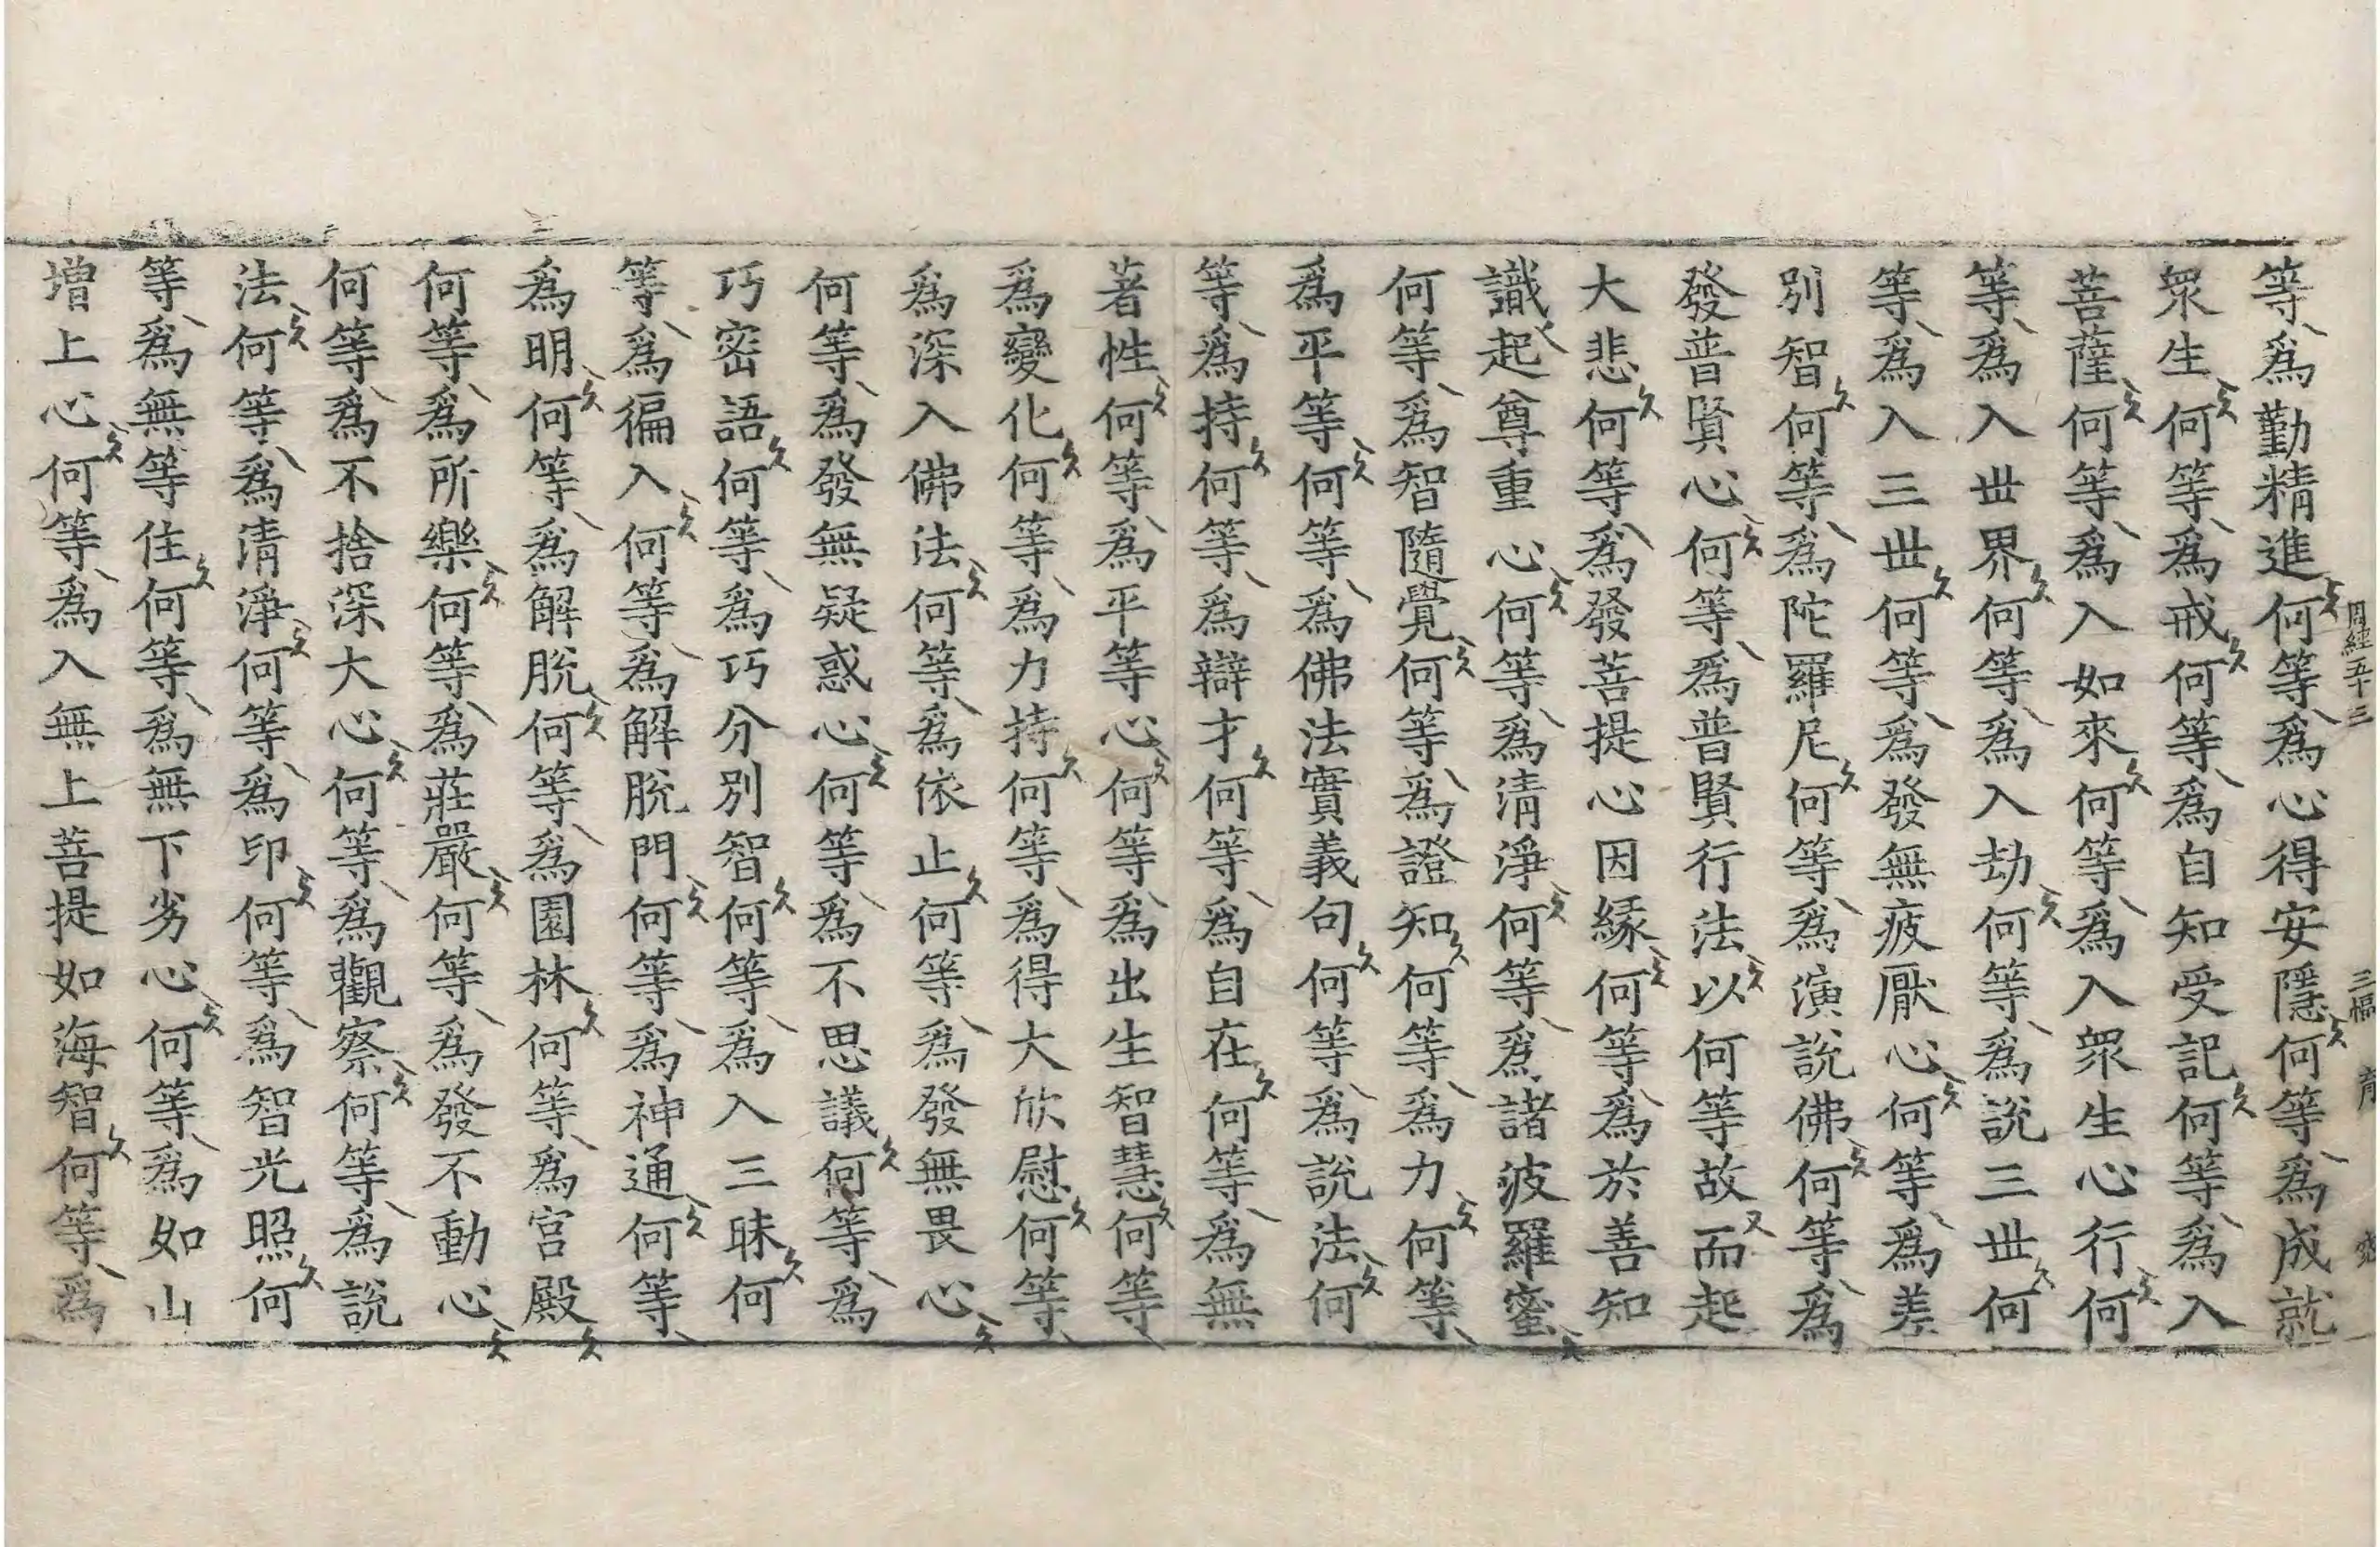 周經五十三
等爲勤精進何等爲心得安隱何等爲成就
眾生何等爲戒何等爲自知受記何等爲入
菩薩何等爲入如來何等爲入眾生心行何
等爲入世界何等爲入劫何等爲說三世何
等爲入三世何等爲發無疲厭心何等爲差
別智何等爲陀羅尼何等爲演說佛何等爲
發普賢心何等爲普賢行法以何等故而起
大悲何等爲發菩提心因緣何等爲於善知
識起尊重心何等爲清淨何等爲諸波羅蜜
何等爲智隨覺何等爲證知何等爲力何等
爲平等何等爲佛法實義句何等爲說法何
等爲持何等爲辯才何等爲自在何等爲無
著性何等爲平等心何等爲出生智慧何等
爲變化何等爲力持何等爲得大欣慰何等
爲深入佛法何等爲依止何等爲發無畏心
何等爲發無疑惑心何等爲不思議何等爲
巧密語何等爲巧分別智何等爲入三昧何
等爲徧入何等爲解脫門何等爲神通何等
爲明何等爲解脫何等爲園林何等爲宮殿
何等爲所樂何等爲莊嚴何等爲發不動心
何等爲不捨深大心何等爲觀察何等爲說
法何等爲清淨何等爲印何等爲智光照何
等爲無等住何等爲無下劣心何等爲如山
增上心何等爲入無上菩提如海智何等爲